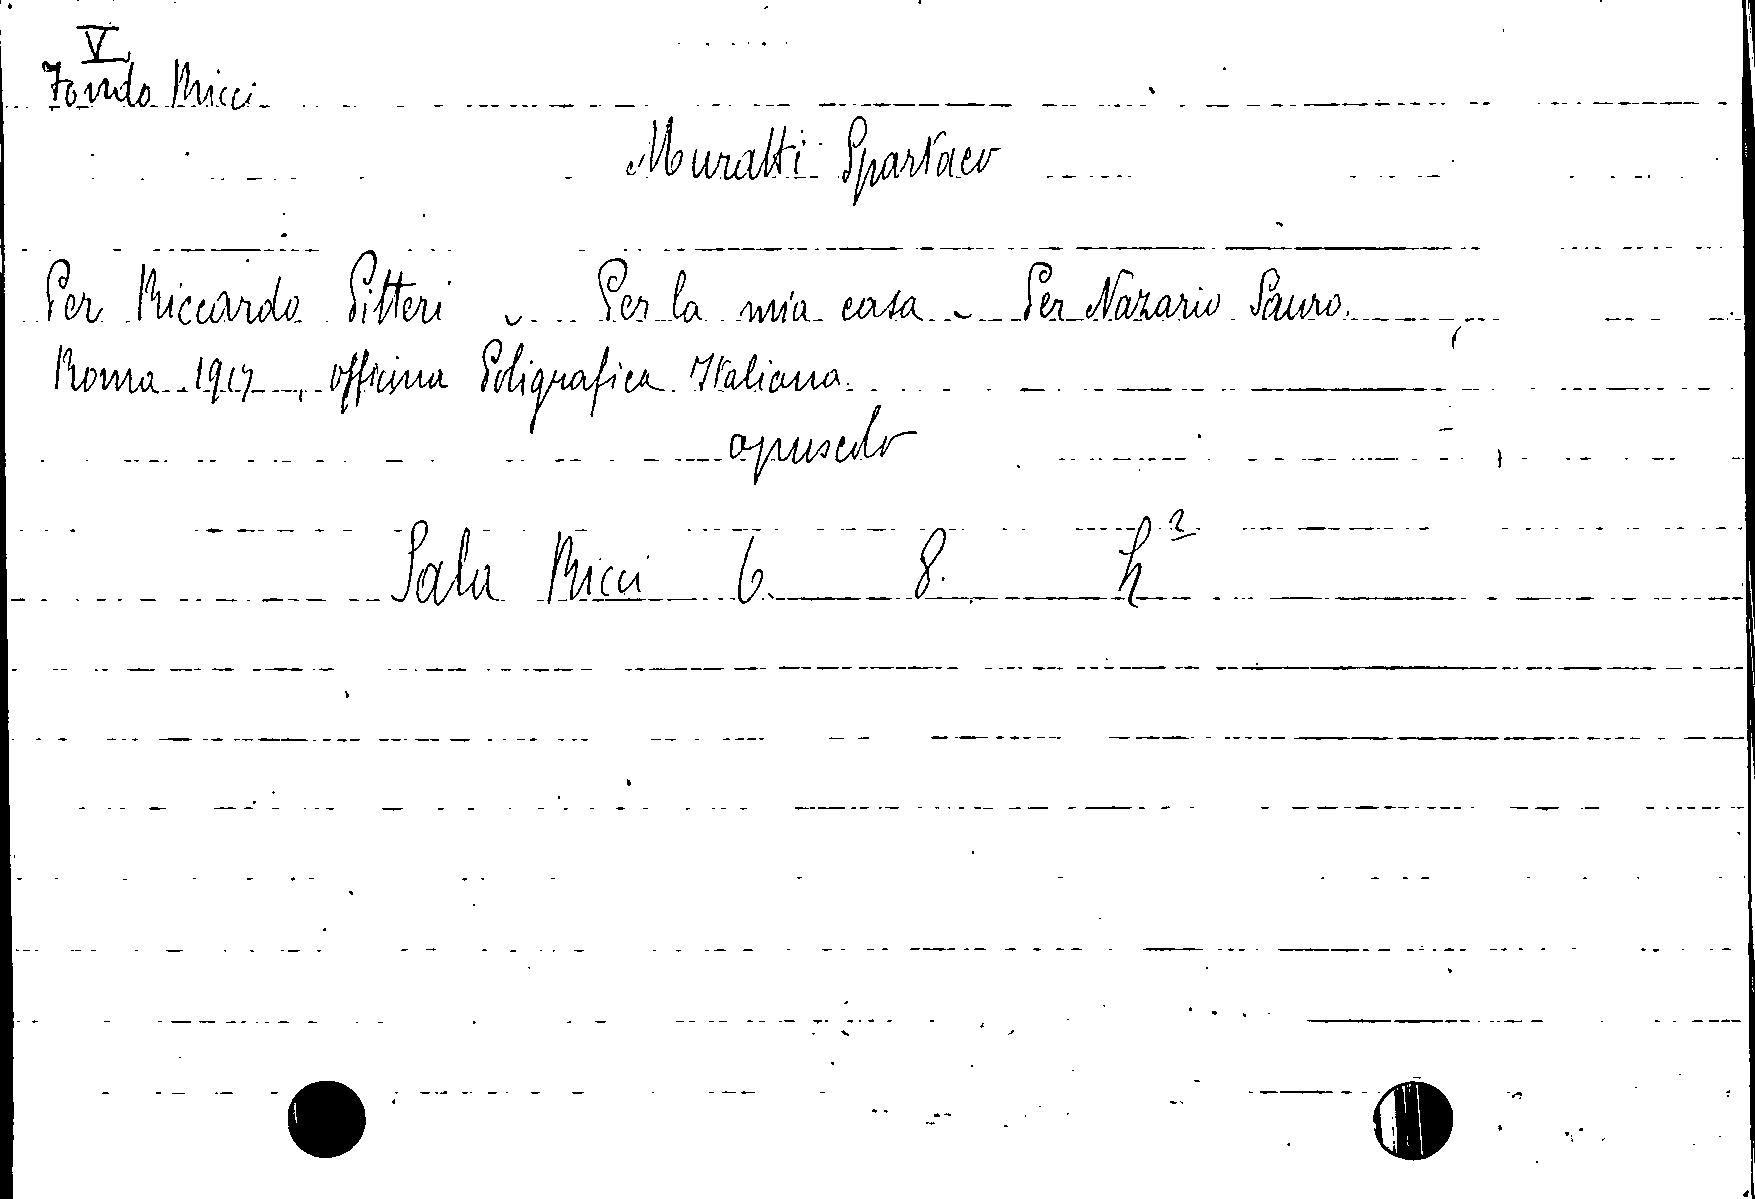 V
Fondo Ricci
Muratti Spartaco
Per Riccardo Pitteri - Per la mia casa - Per Nazario Sauro.
Roma 1917, officina Poligrafica Italiana.
opuscolo
Sala Ricci 6. 8. h²